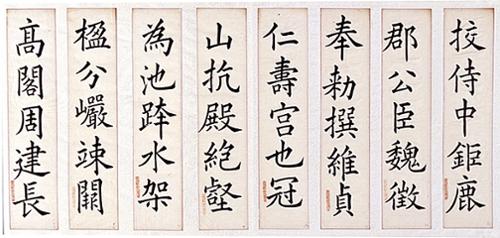 挍侍中鉅鹿
郡公臣魏徵
奉勑撰維貞
仁壽宫也冠
山抗殿絶壑
為池跨水架
楹分巖竦闕
高閣周建長